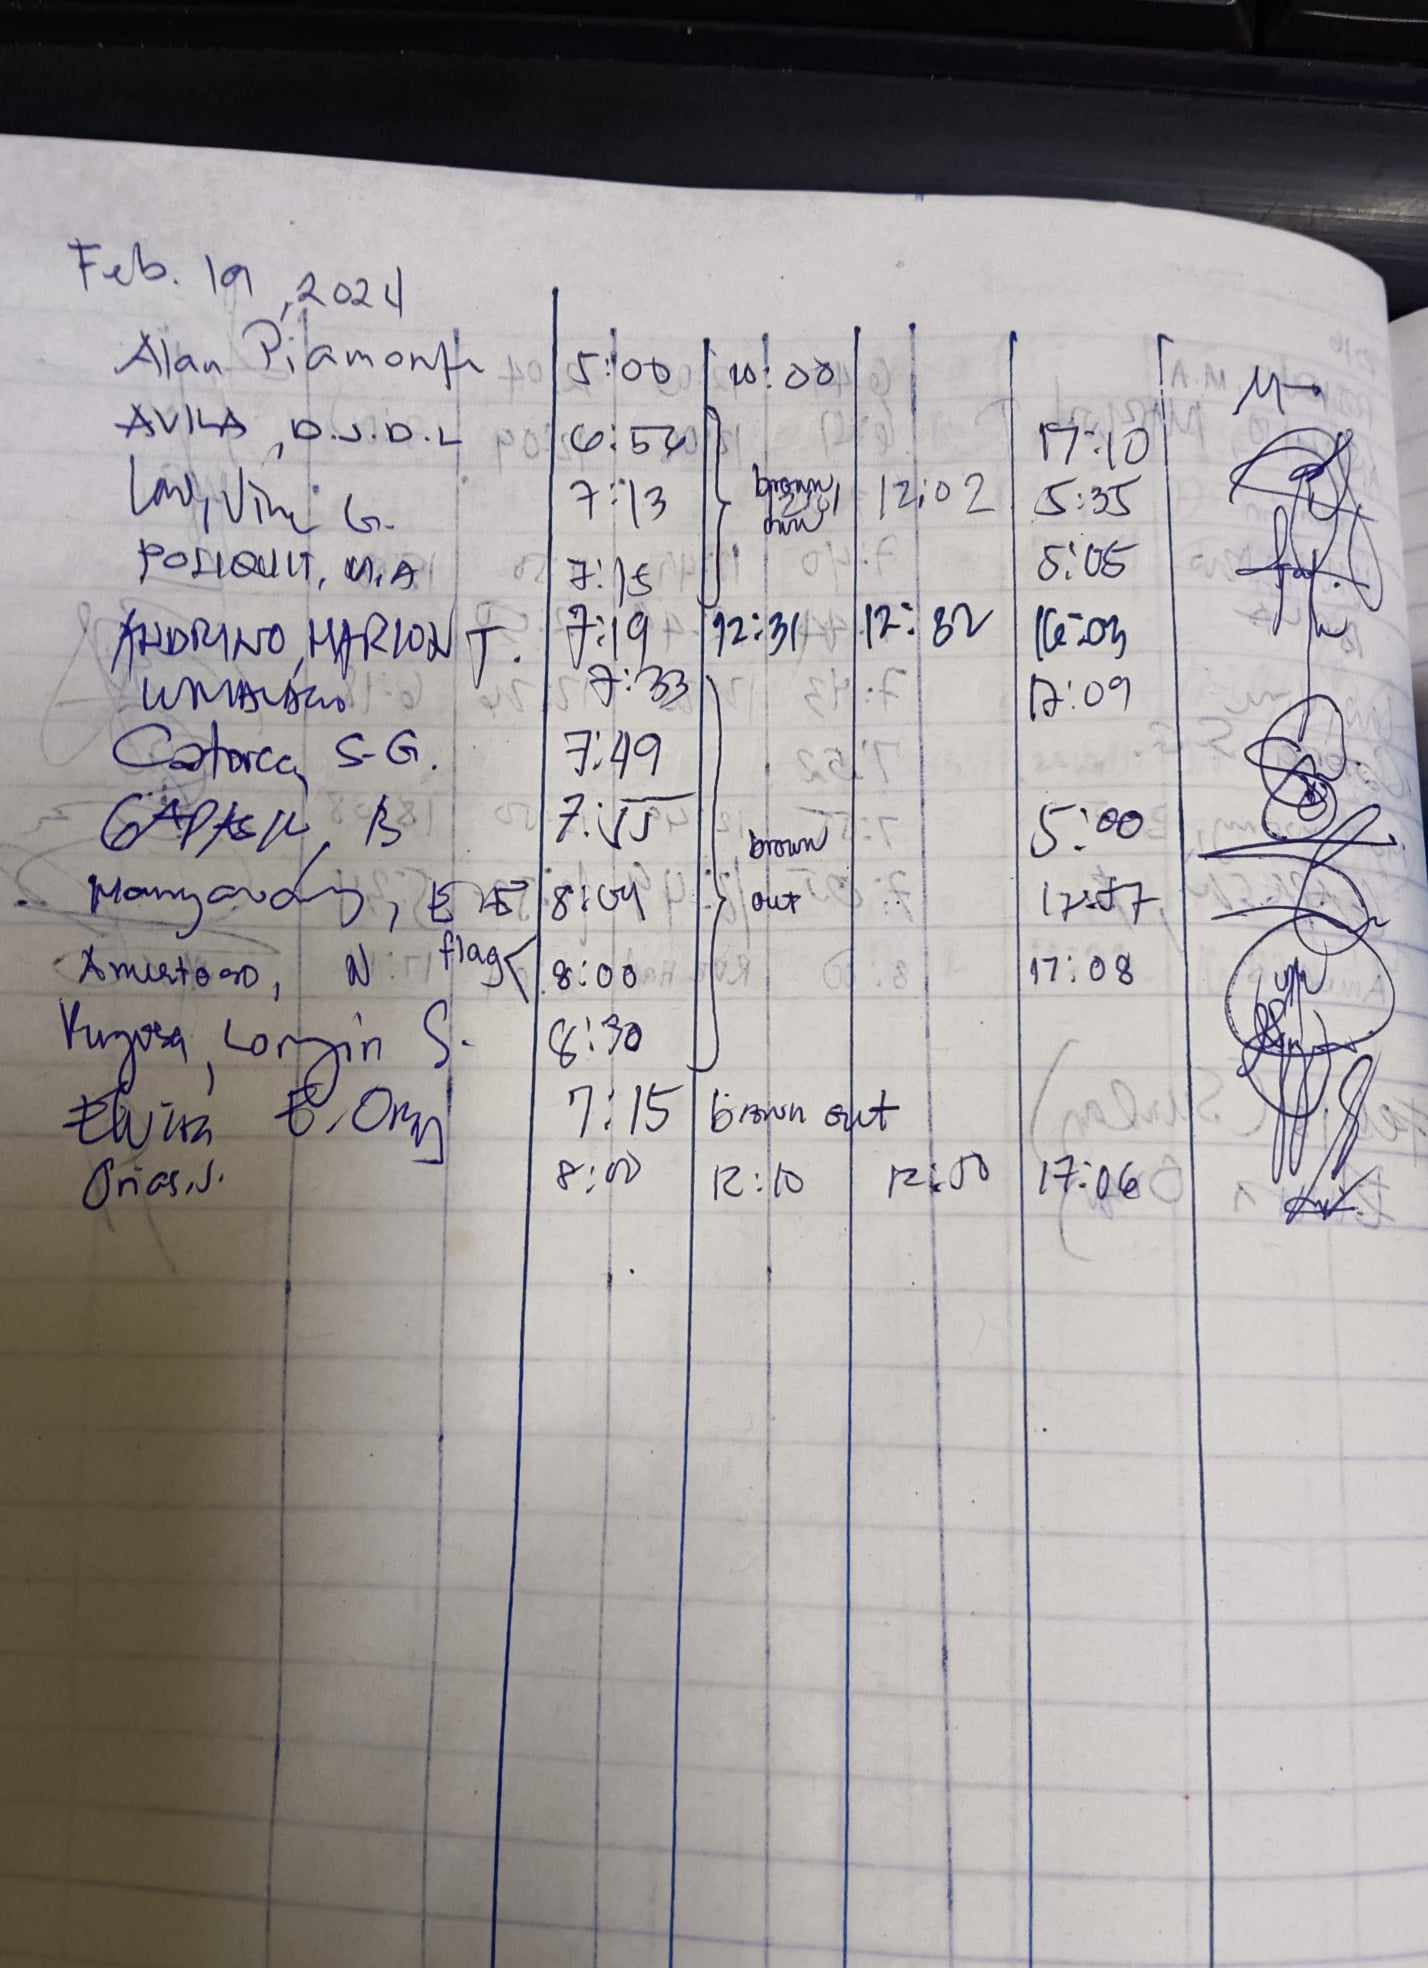 Feb. 19, 2024
Alan Piamonte 5:00 10:00
AVILA, D.J.D.L 6:54 17:10
G. 7:13 brown out 12:01 12:02 5:35
POLIQUIT, M.A 7:15 5:05
ANDRINO, MARION T. 7:19 12:31 12:32 16:03
7:33 17:09
Catorce, S.G. 7:49
GAPASIN, B 7:55 brown 5:00
8:04 out 17:57
N flag 8:00 17:08
S. 8:30
Elvira E. 7:15 brown out
Orias, J. 8:00 12:10 12:50 17:06